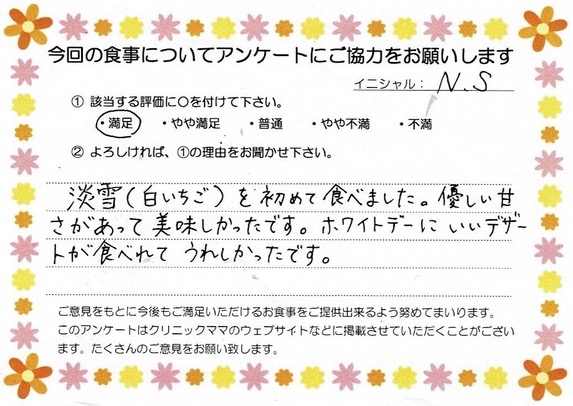 今回の食事についてアンケートにご協力をお願いします
イニシャル： N.S
① 該当する評価に○を付けて下さい。
・満足 ・やや満足 ・普通 ・やや不満 ・不満
② よろしければ、①の理由をお聞かせ下さい。
淡雪（白いちご）を初めて食べました。優しい甘
さがあって美味しかったです。ホワイトデーにいいデザー
トが食べれてうれしかったです。
ご意見をもとに今後もご満足いただけるお食事をご提供出来るよう努めてまいります。
このアンケートはクリニックママのウェブサイトなどに掲載させていただくことがござい
ます。たくさんのご意見をお願い致します。